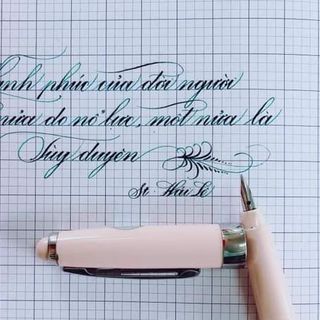 ạnh phúc của đời người
nửa do nỗ lực, một nửa là
Tùy duyên
St